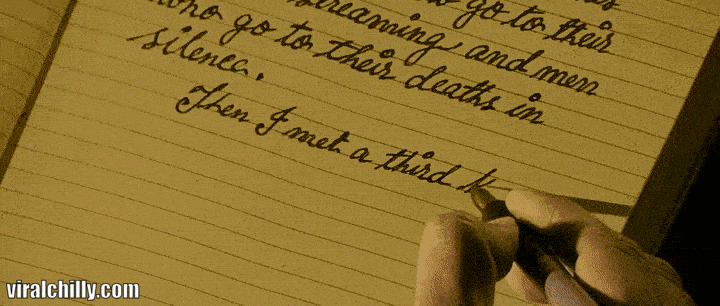 go to their
screaming and men
who go to their deaths in
silence.
Then I met a third k
viralchilly.com